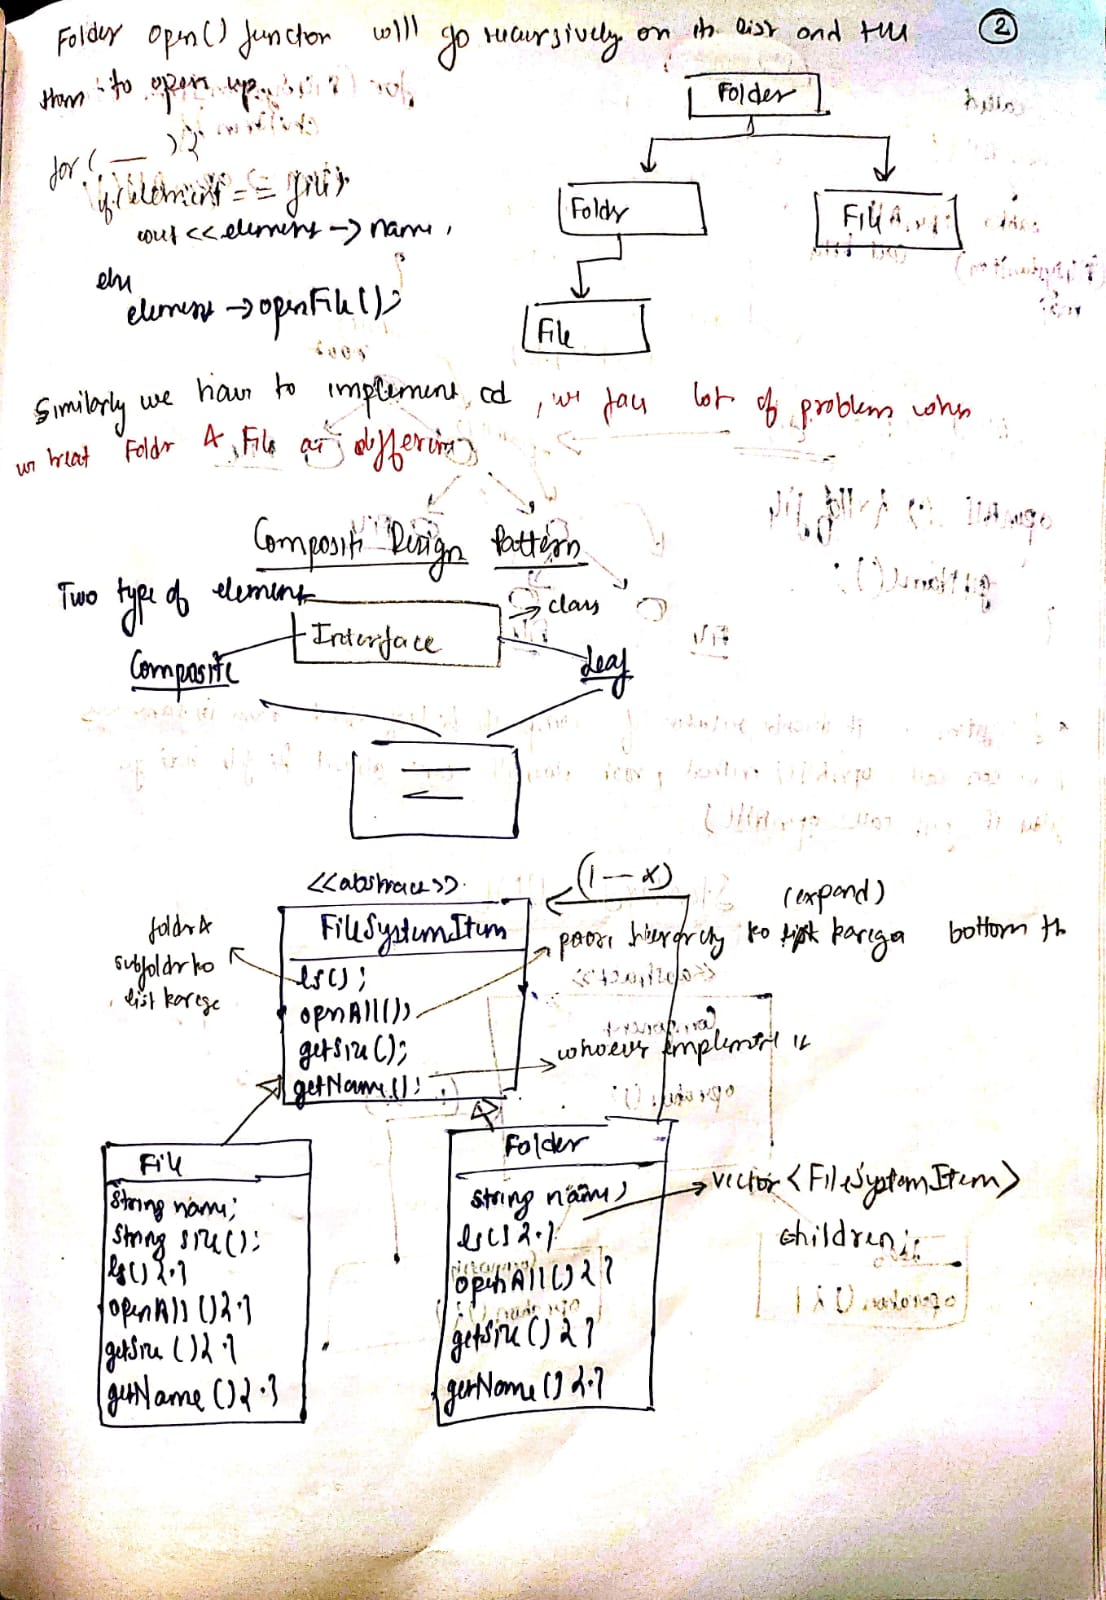 ②
Folder open() function will go recursively on its list and tell
them to open up.
for ( __ ) {
if (element == file)
cout << element -> name,
else
element -> openFile();
Folder
Folder
File
File
Similarly we have to implement cd, we face lot of problem when
we treat Folder & File as different
Composite Design Pattern
Two type of element
class
Interface
Composite
Leaf
<<abstract>>
(1-*)
FileSystemItem
ls();
openAll();
getSize();
getName();
folder &
subfolder ko
list karege
(expand)
poori hierarchy ko karega bottom
whoever implement it
File
String name;
String size();
ls() { . }
openAll () { . }
getSize () { . }
getName () { . }
Folder
string name;
ls() { . }
openAll () { }
getSize () { }
getName () { . }
vector <FileSystemItem>
children;